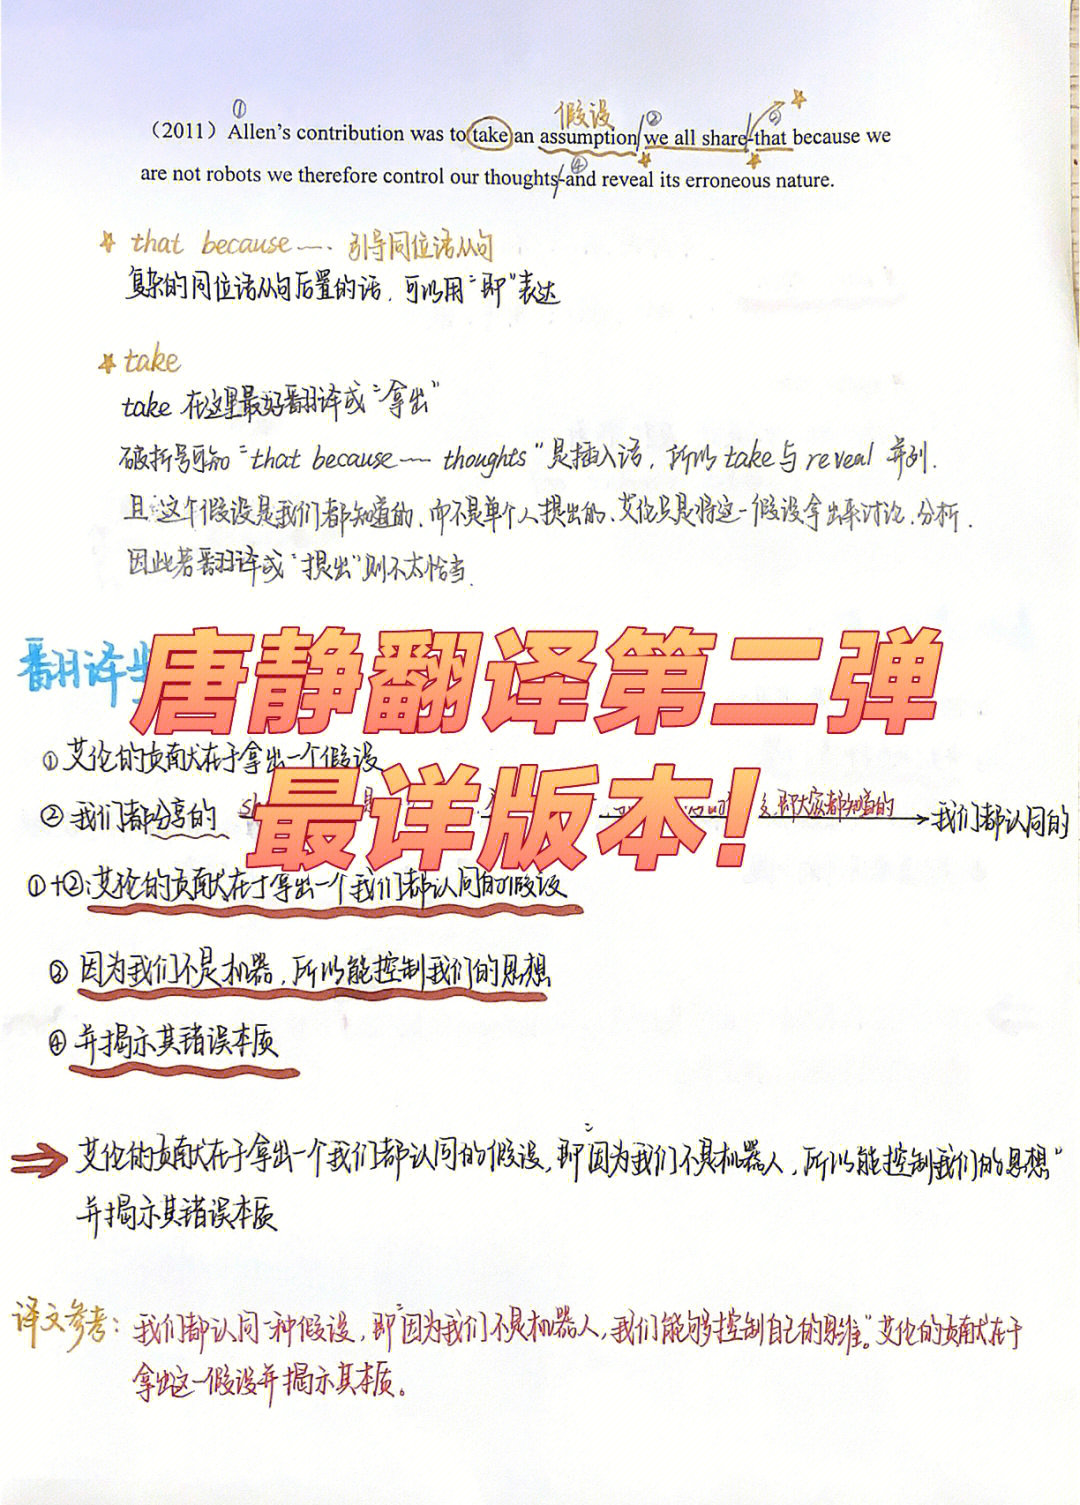 ①
假设
②
③
(2011) Allen's contribution was to take an assumption we all share-that because we
④
are not robots we therefore control our thoughts-and reveal its erroneous nature.
that because ―. 引导同位语从句
复杂的同位语从句后置的话, 可以用"即"表达
take
take 在这里最好翻译成"拿出"
破折号可知"that because ― thoughts"是插入语, 所以 take 与 reveal 并列.
且这个假设是我们都知道的, 而不是单个人提出的、艾伦只是将这一假设拿出来讨论、分析.
因此若翻译成"提出"则不太恰当.
翻译
唐静翻译第二弹
最详版本!
① 艾伦的贡献在于拿出一个假设
② 我们都分享的 即大家都知道的 → 我们都认同的
①+②:艾伦的贡献在于拿出一个我们都认同的假设
③ 因为我们不是机器, 所以能控制我们的思想
④ 并揭示其错误本质
⇒ 艾伦的贡献在于拿出一个我们都认同的假设, 即"因为我们不是机器人, 所以能控制我们的思想"
并揭示其错误本质
译文参考: 我们都认同一种假设, 即"因为我们不是机器人, 我们能够控制自己的思维。"艾伦的贡献在于
拿出这一假设并揭示其本质。